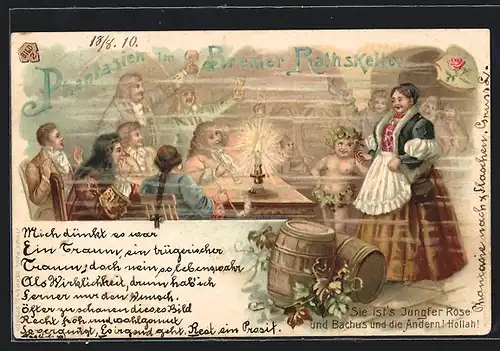 13/8. 10.
BILD
Phantasien im Bremer Rathskeller
Mich dünkt es war
Ein Traum, ein trügerischer
Traum; doch nein, so lebenswahr
Als Wirklichkeit, drum hab' ich
Ferner nur den Wunsch,
Öfter zu schauen dieses Bild
Recht froh und wohlgemut
geht. Rest ein Prosit.
Sie ist's Jungfer Rose
und Bachus und die Andern! Hollah!
Phantasie nach